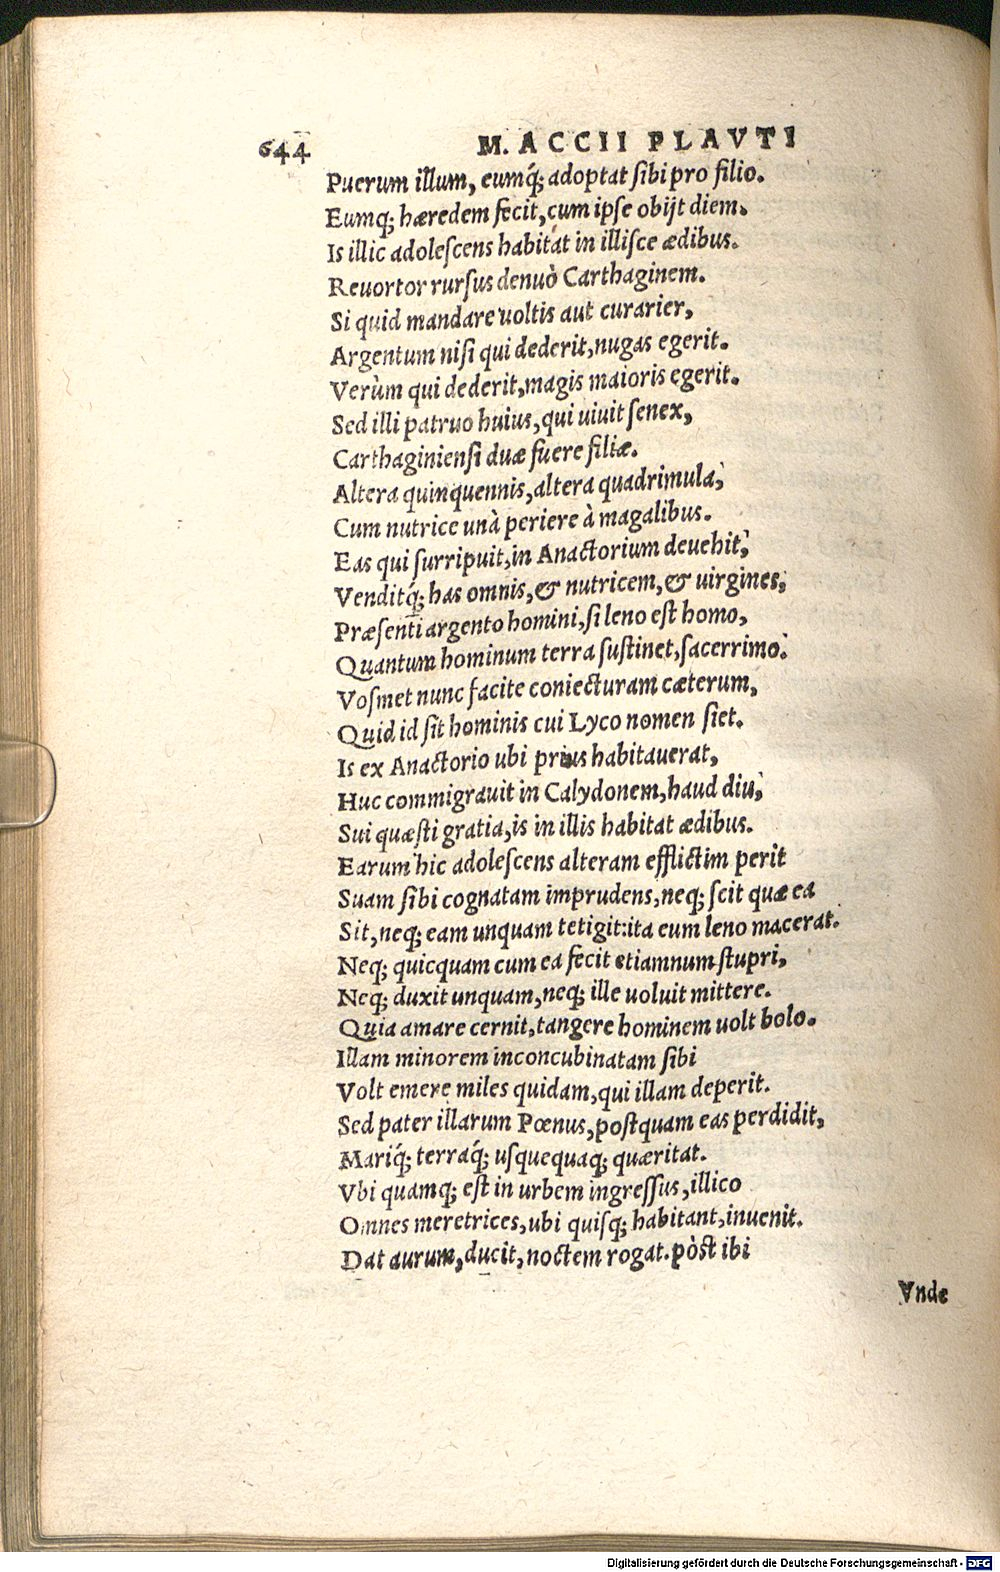 644 M. ACCII PLAVTI
Puerum illum, eumq́; adoptat sibi pro filio.
Eumq; hæredem fecit, cum ipse obijt diem.
Is illic adolescens habitat in illisce ædibus.
Reuortor rursus denuò Carthaginem.
Si quid mandare uoltis aut curarier,
Argentum nisi qui dederit, nugas egerit.
Verùm qui dederit, magis maioris egerit.
Sed illi patruo huius, qui uiuit senex,
Carthaginiensi duæ fuere filiæ.
Altera quinquennis, altera quadrimula,
Cum nutrice unà periere à magalibus.
Eas qui surripuit, in Anactorium deuehit,
Venditq́; has omnis, & nutricem, & uirgines,
Præsenti argento homini, si leno est homo,
Quantum hominum terra sustinet, sacerrimo.
Vosmet nunc facite coniecturam cæterum,
Quid id sit hominis cui Lyco nomen siet.
Is ex Anactorio ubi prius habitauerat,
Huc commigrauit in Calydonem, haud diu,
Sui quæsti gratia, is in illis habitat ædibus.
Earum hic adolescens alteram efflictim perit
Suam sibi cognatam imprudens, neq; scit quæ ea
Sit, neq; eam unquam tetigit: ita eum leno macerat.
Neq; quicquam cum ea fecit etiamnum stupri,
Neq; duxit unquam, neq; ille uoluit mittere.
Quia amare cernit, tangere hominem uolt bolo.
Illam minorem inconcubinatam sibi
Volt emere miles quidam, qui illam deperit.
Sed pater illarum Pœnus, postquam eas perdidit,
Mariq́; terraq́; usquequaq; quæritat.
Vbi quamq; est in urbem ingressus, illico
Omnes meretrices, ubi quisq; habitant, inuenit.
Dat aurum, ducit, noctem rogat. pòst ibi
Vnde
Digitalisierung gefördert durch die Deutsche Forschungsgemeinschaft - DFG